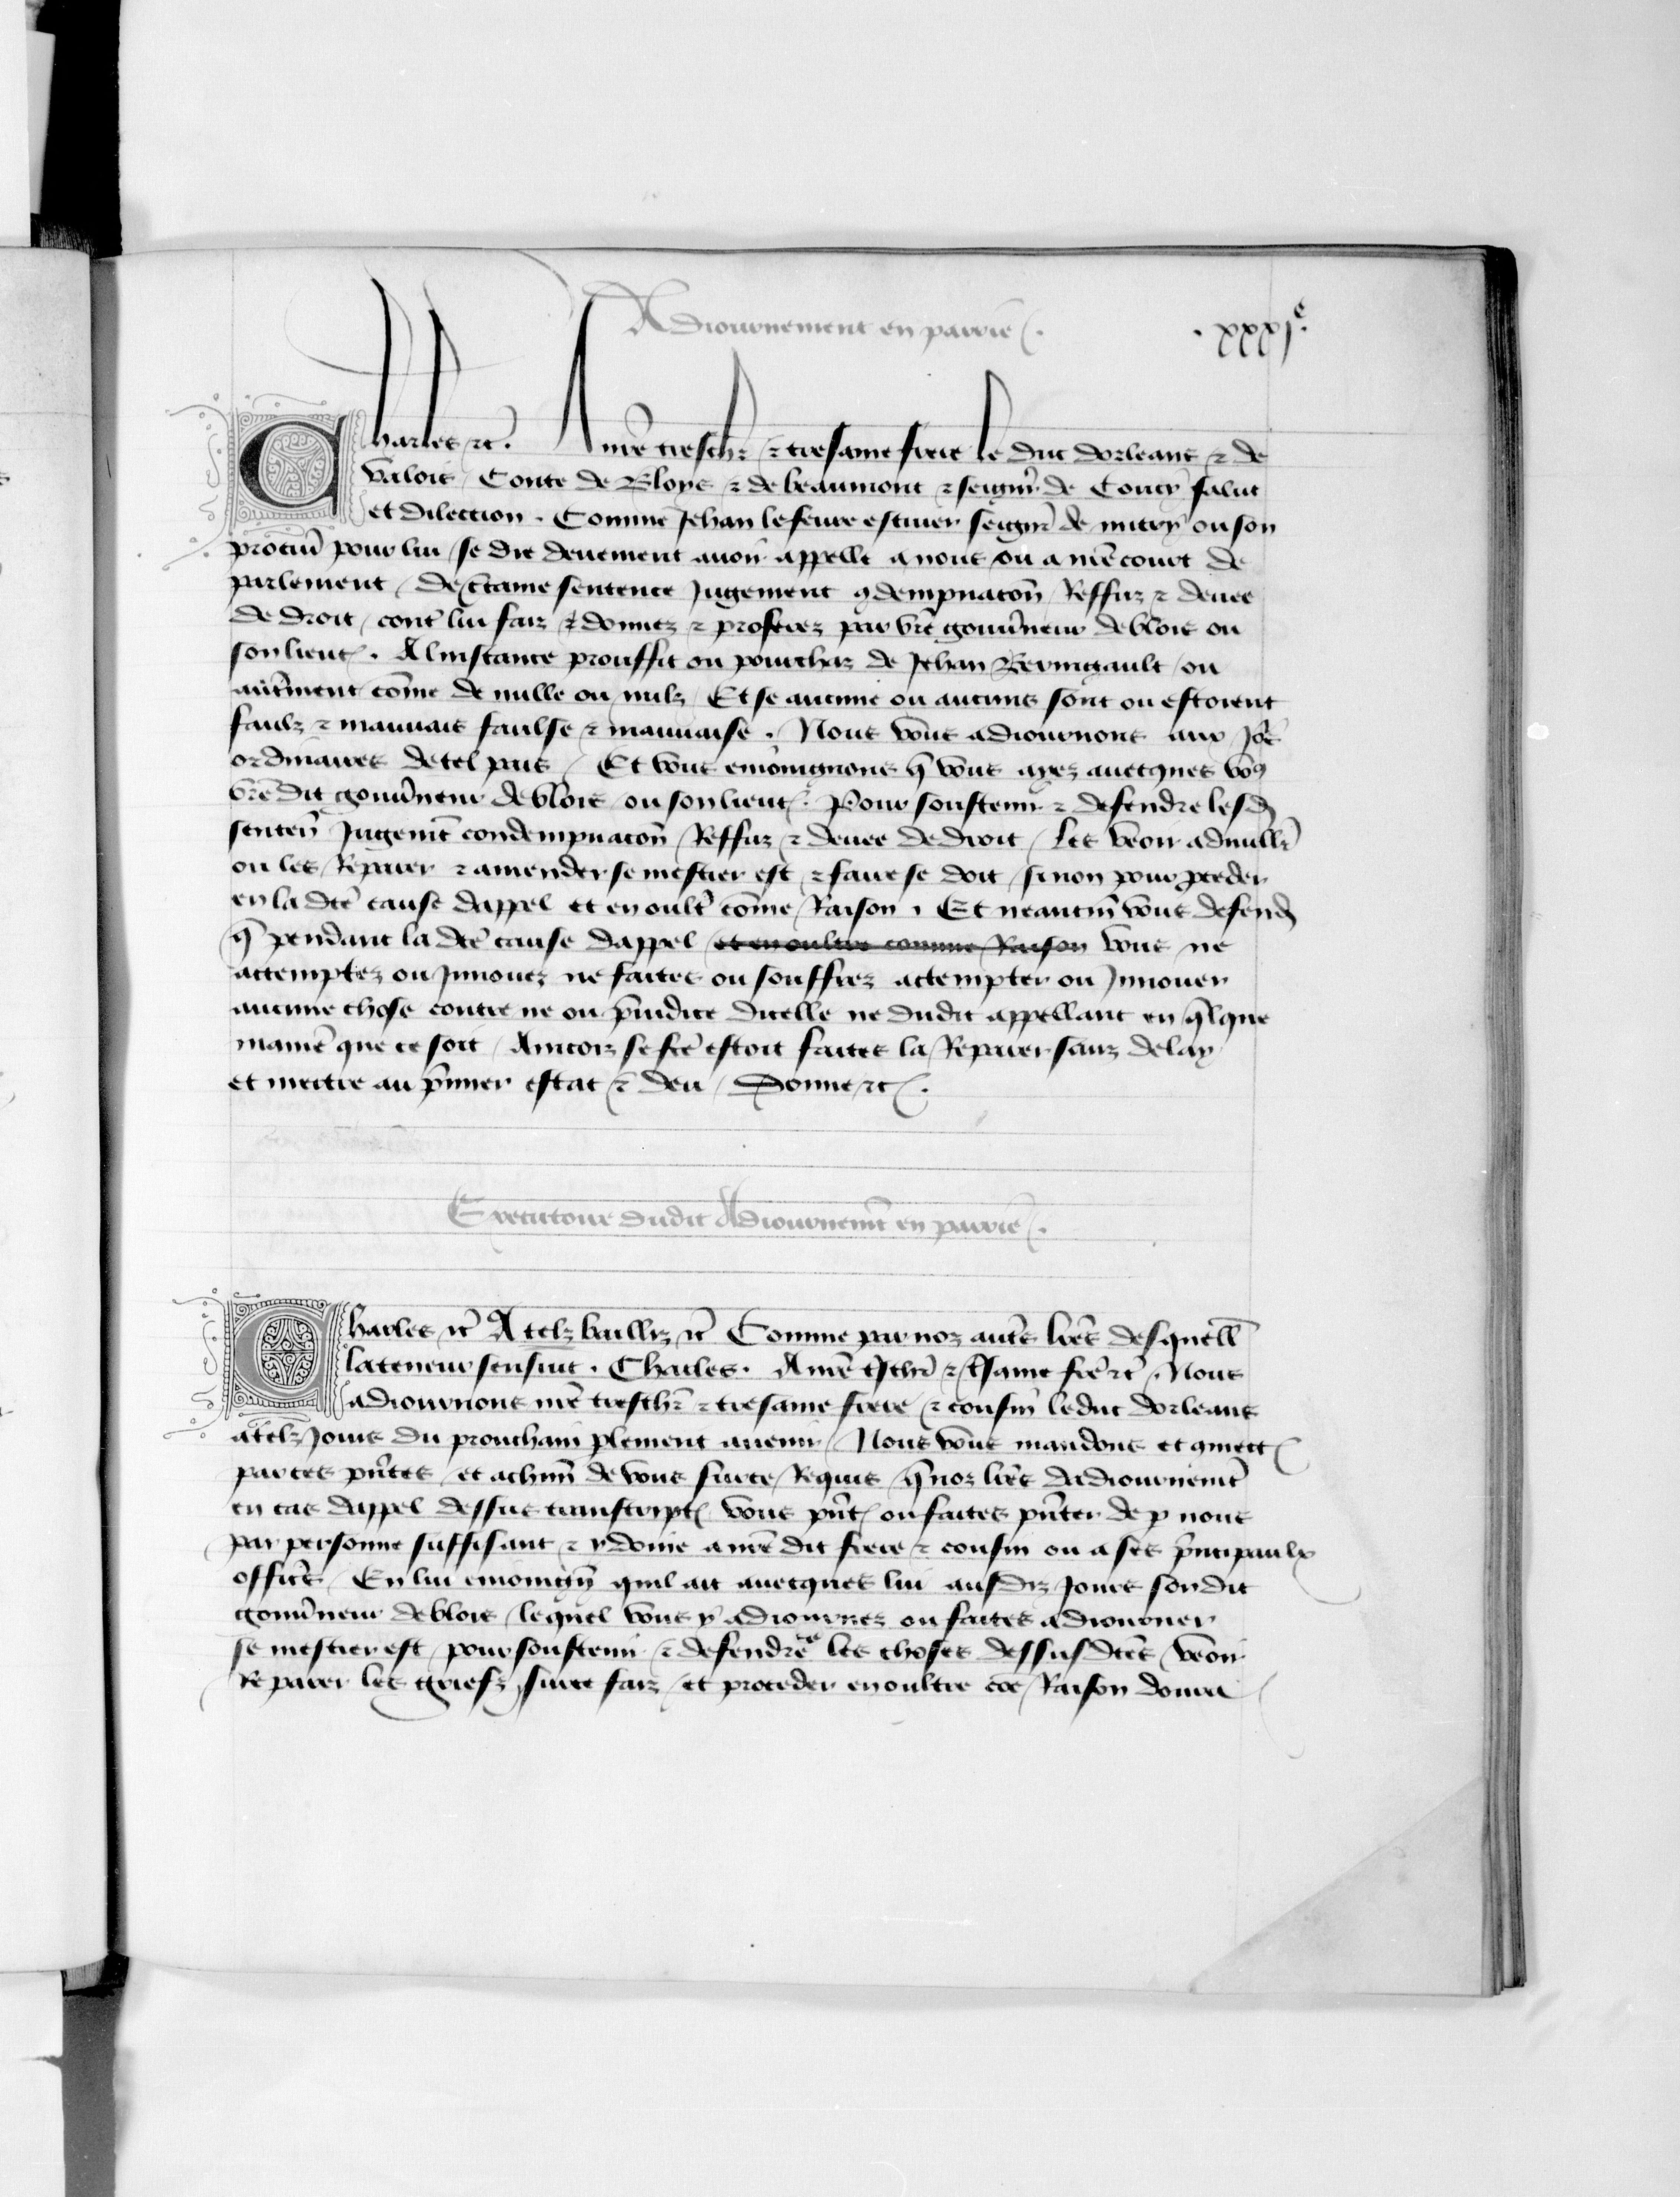 Adiournement en parrie
.xxxj.e
Charles etc. A nr̄e treschr̄ ⁊ tresame frere le duc dorleans ⁊ de
valois / Conte de Bloys ⁊ de beaumont ⁊ seignr̄ de Coucy salut
et dilection . Comme Jehan lefeure escuier seignr̄ de mitry ou son
procur̄ pour lui / se dit deuement auoir appelle a nous ou a nr̄e court de
parlement / de c̄taine sentence Jugement ꝯdempnacōn / Reffuz ⁊ denee
de droit / cont̄ lui faiz ⁊ donnez ⁊ proferez par vr̄e gouūneur de blois ou
son lieut̄ . A linstance prouffit ou pourchaz de Jehan Berruigault / ou
aut̄ment / cōme de nulle ou nulz / Et se aucune ou aucuns sont ou estoient
faulx ⁊ mauuais faulse ⁊ mauuaise . Nous vous adiournons aux Jo͛s
ordinaires de tel pais / Et vous enioingnons q̄ vous ayez auecques voꝯ
vr̄e dit gouūneur de blois / ou son lieut̄ . Pour soustenir ⁊ defendre lesd̄
senten̄ Jugemt̄ condempnacōn / Reffuz ⁊ denee de droit / les veoir adnuller̄
ou les Reparer ⁊ amender se mestier est / ⁊ faire se doit / sinon pour ꝓceder
en la dcē cause dappel et en oult̄ cōme Raison . Et neantm̄ vous defend̄
q̄ pendant la dcē cause dappel et en oultre comme Raison vous ne
actemptez ou Innouez ne faites ou souffrez actempter ou Innouer
aucune chose contre ne ou p̄iudice dicelle ne dudit appellant en q̄lque
manie͛ que ce soit / Aincois se fcē estoit faites la / Reparer sanz delay
et mectre au p̄mier estat ⁊ deu / Donne etc.
Executoire dudit Adiournemt̄ en parrie
Charles etc̄ A telz bailliz etc̄ Comme par noz aut̄s lr̄es desquell̄
la teneur sensuit . Charles . A nr̄e t͛schr̄ ⁊ t͛same fr̄e etc̄ . Nous
adiournons nr̄e treschr̄ ⁊ tresame frere ⁊ cousin le duc dorleans
a telz Jours du prouchain ꝑlement auenir / Nous vous mandons et ꝯmect̄
par ces pn̄tes / et a chūn de vous sur ce / Requis / q̄ noz lr̄es dadiournemt̄
en cas dappel dessus transcript̄ vous pn̄t̄ ou faites pn̄ter de ꝑ nous
par personne suffisant ⁊ ydoine a nr̄e dit frere ⁊ cousin ou a ses p̄ncipaulx
offic̄s / En lui enioingn̄ quil ait auecques lui ausdiz Jours sondit
gouūneur de blois / lequel vous y adiournez ou faites adiourner
se mestier est / pour soustenir ⁊ defendre les choses dessusdc̄es / veoir
Reparer les griefz sur ce faiz / et proceder en oultre cōe / Raison donra